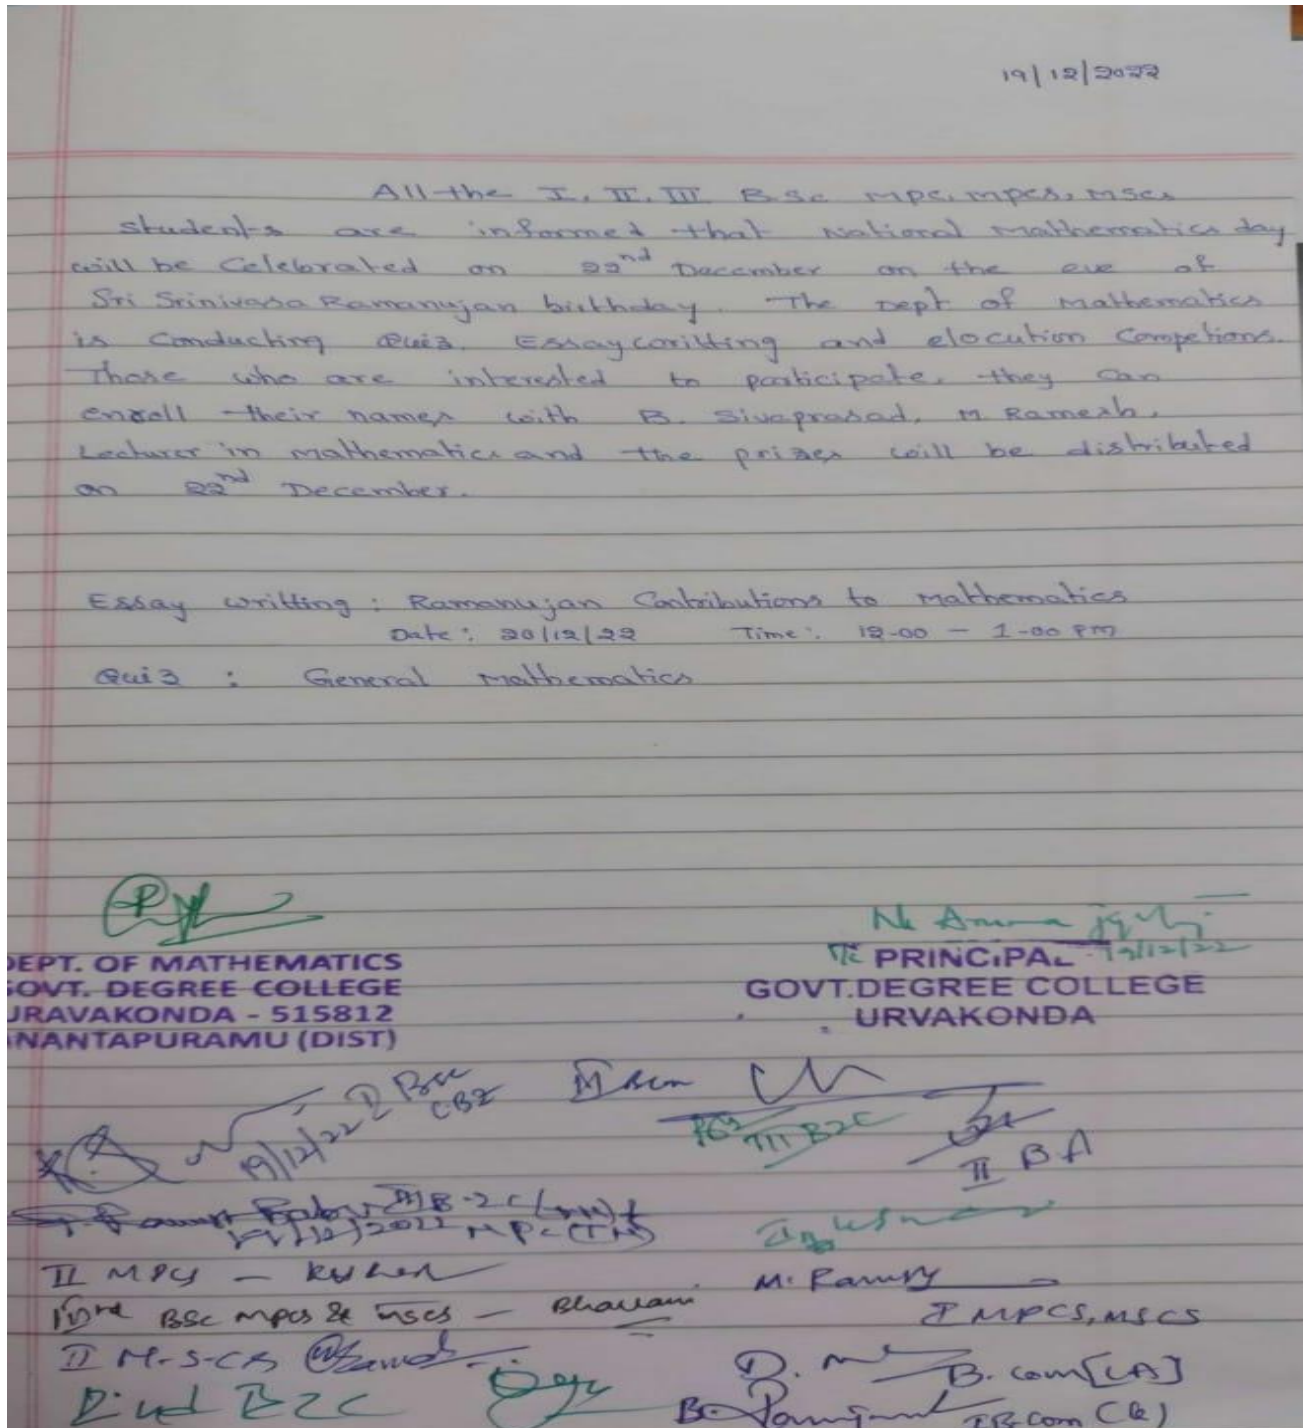 19/12/2022
All the I, II, III B.Sc MPC, MPCS, MSCS
students are informed that National Mathematics day
will be Celebrated on 22nd December on the eve of
Sri Srinivasa Ramanujan birthday. The Dept of Mathematics
is Conducting Quiz, Essay writting and elocution Competions.
Those who are interested to participate, they can
enroll their names with B. Sivaprasad, M Ramesh,
Lecturer in mathematics and the prizes will be distributed
on 22nd December.
Essay writting : Ramanujan Contributions to Mathematics
Date : 20/12/22 Time : 12-00 - 1-00 PM
Quiz : General Mathematics
DEPT. OF MATHEMATICS
GOVT. DEGREE COLLEGE
URAVAKONDA - 515812
ANANTAPURAMU (DIST)
PRINCIPAL 19/12/22
GOVT.DEGREE COLLEGE
URVAKONDA
19/12/22 Bsc CBZ
III BZC
II BA
II MPCS -
BSc MPCS & MSCS - Bhavani
I MPCS, MSCS
II M-S-CS
BZC
B. Com [CA]